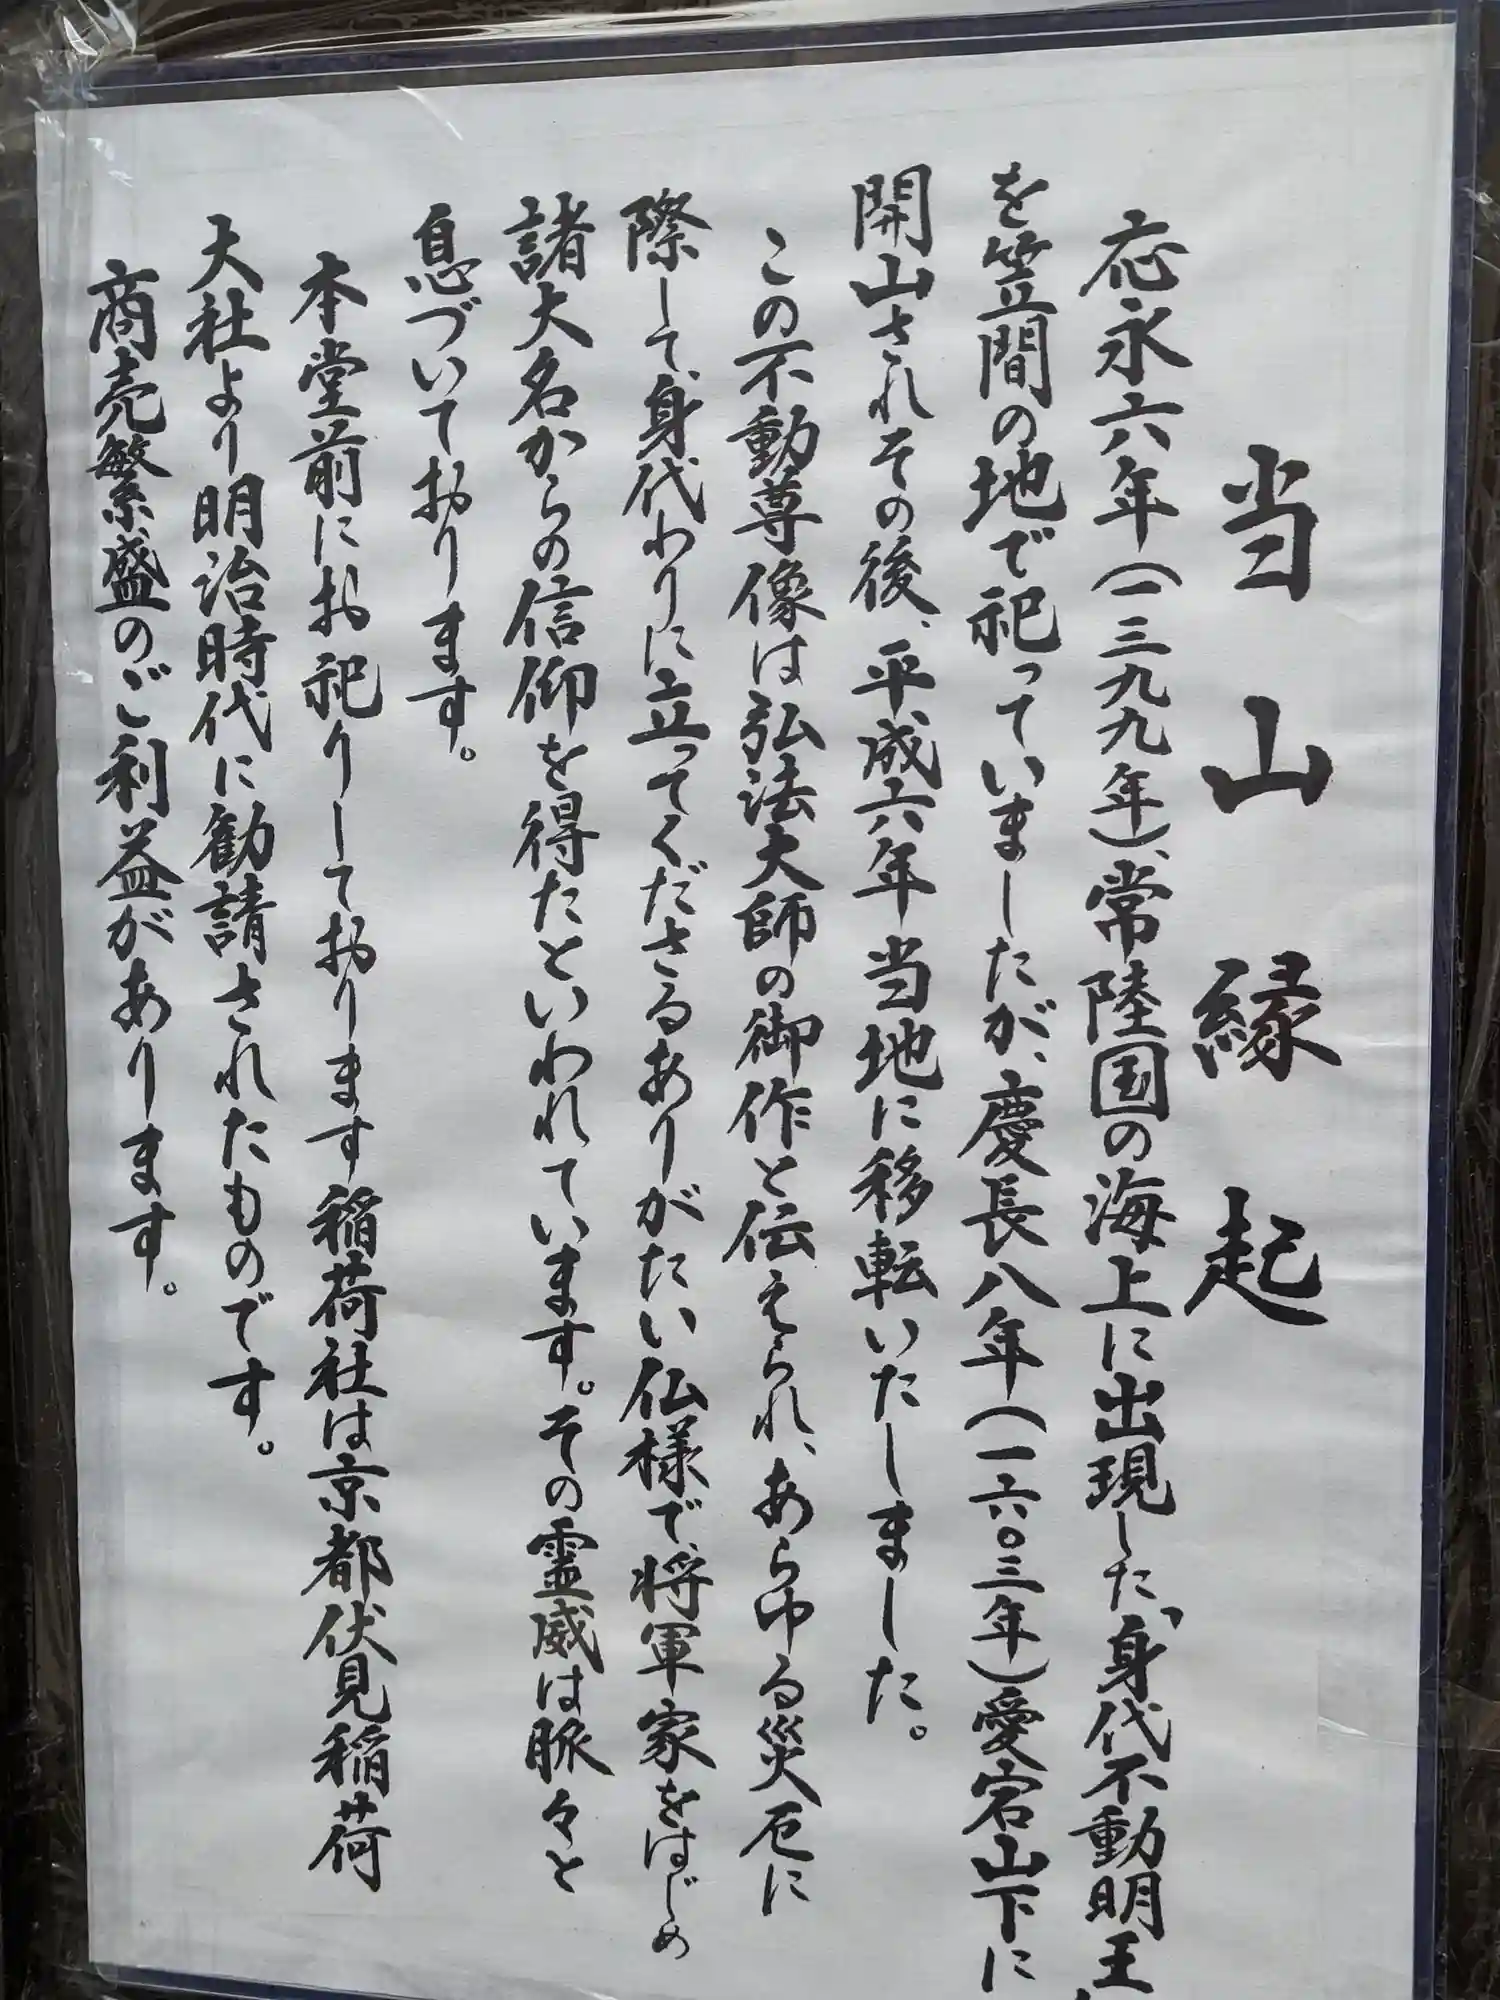 当山縁起
応永六年(一三九九年)、常陸国の海上に出現した、身代不動明王
を笠間の地で祀っていましたが、慶長八年(一六〇三年)愛宕山下に
開山されその後、平成六年当地に移転いたしました。
この不動尊像は弘法大師の御作と伝えられ、あらゆる災厄に
際して、身代わりに立ってくださるありがたい仏様で、将軍家をはじめ
諸大名からの信仰を得たといわれています。その霊威は脈々と
息づいております。
本堂前にお祀りしております稲荷社は京都伏見稲荷
大社より明治時代に勧請されたものです。
商売繁盛のご利益があります。